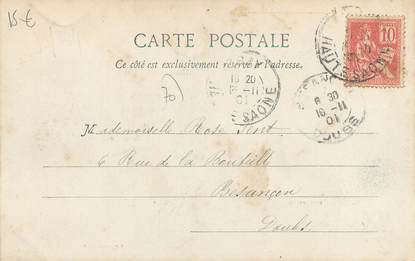 15 €
CARTE POSTALE
Ce côté est exclusivement réservé à l'adresse.
10
70
10 20
11
01
SAONE
HAUTE SAONE
8 30
16 -11
01
DOUBS
Mademoiselle Rose
6 Rue de la
Besançon
Doubs